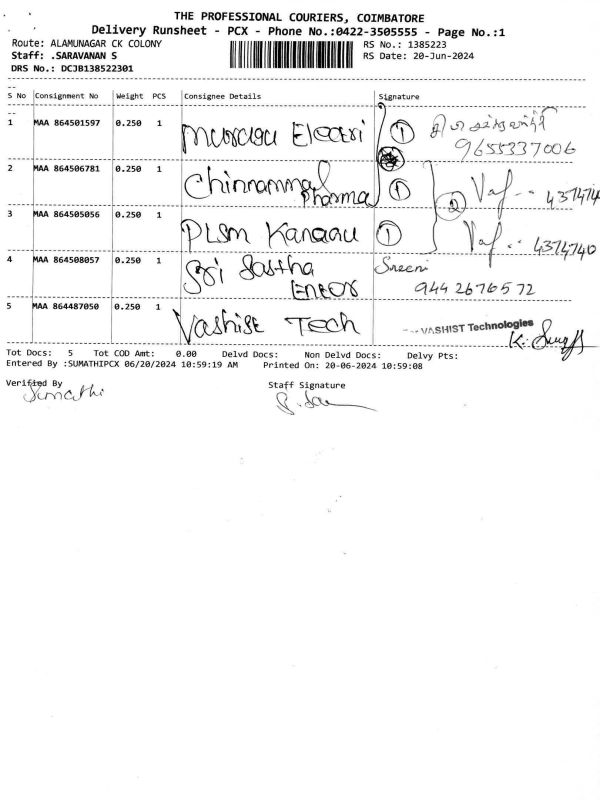 THE PROFESSIONAL COURIERS, COIMBATORE
Delivery Runsheet - PCX - Phone No.:0422-3505555 - Page No.:1
Route: ALAMUNAGAR CK COLONY RS No.: 1385223
Staff: .SARAVANAN S RS Date: 20-Jun-2024
DRS No.: DCJB138522301
S No Consignment No Weight PCS Consignee Details Signature
1 MAA 864501597 0.250 1 Murugu Electri 1
9655337006
2 MAA 864506781 0.250 1 Chinnammal Pharma 1 2 4374740
3 MAA 864505056 0.250 1 PLSM 1 4374740
4 MAA 864508057 0.250 1 Sri Sastha Sreeni
Enter 9442676572
5 MAA 864487050 0.250 1 Vashist Tech VASHIST Technologies
Tot Docs: 5 Tot COD Amt: 0.00 Delvd Docs: Non Delvd Docs: Delvy Pts:
Entered By :SUMATHIPCX 06/20/2024 10:59:19 AM Printed On: 20-06-2024 10:59:08
Verified By Staff Signature
Sumathi